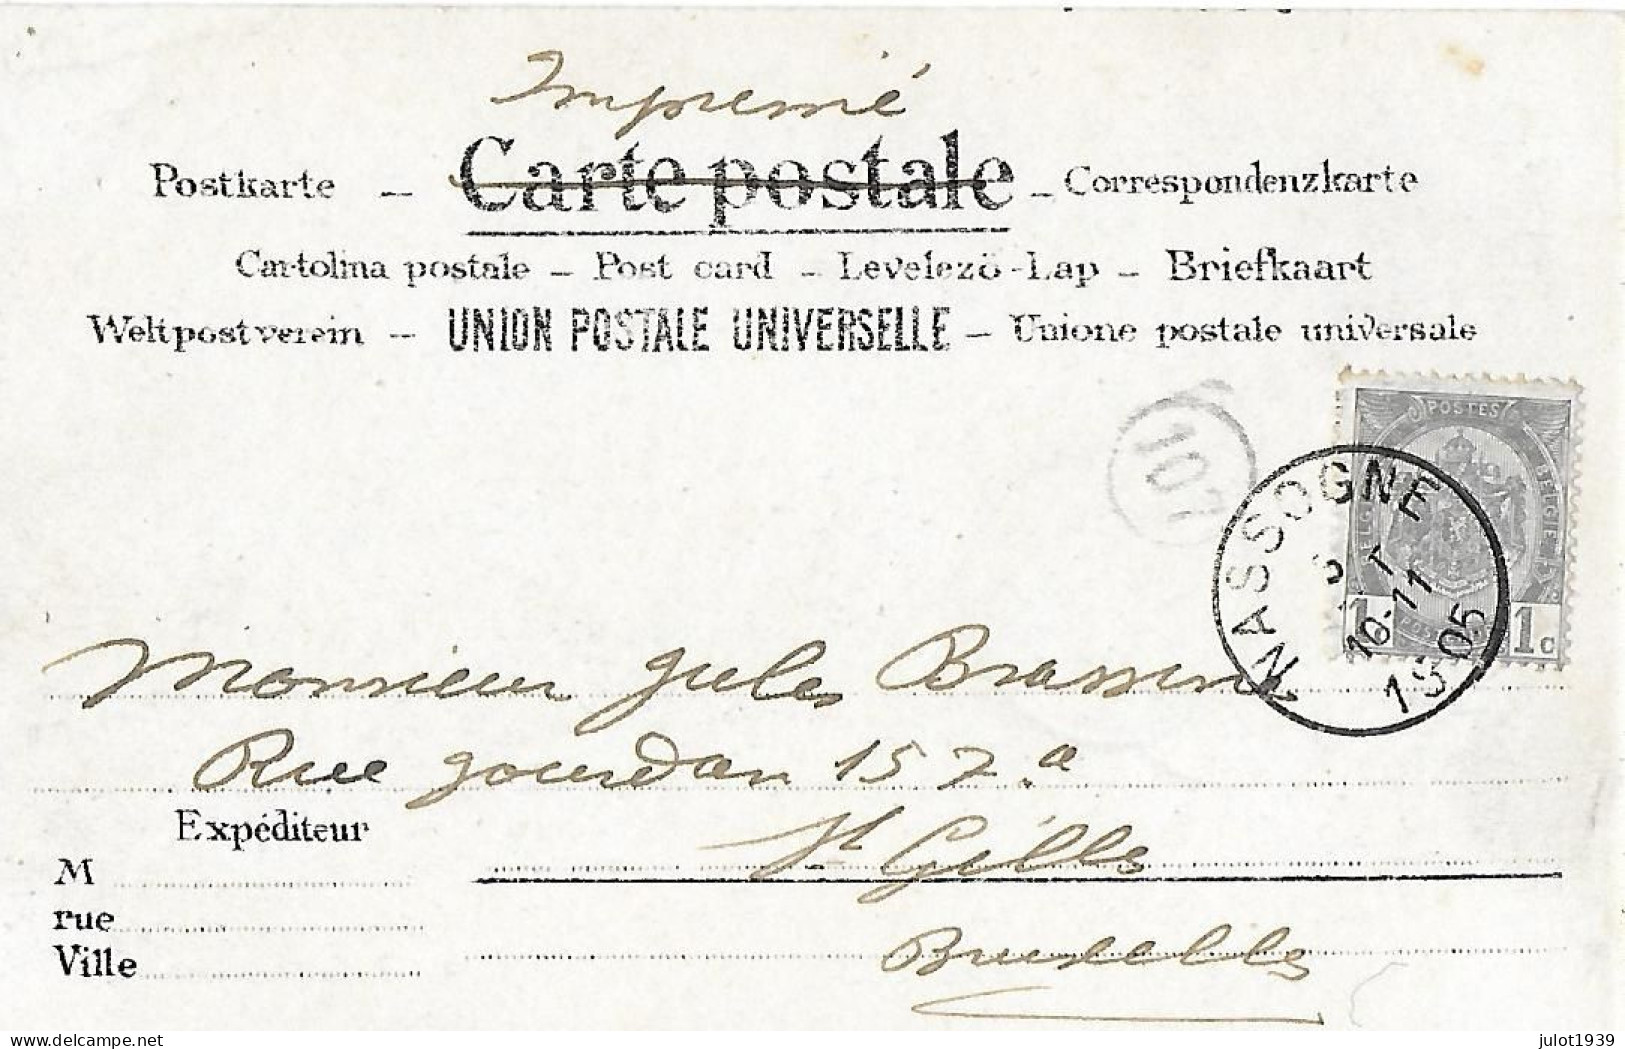 Imprimé
Postkarte – Carte postale – Correspondenzkarte
Cartolina postale – Post card – Levelezö-Lap – Briefkaart
Weltpostverein – UNION POSTALE UNIVERSELLE – Unione postale universale
POSTES
BELGIE
1c
107
NASSOGNE
10-11
1905
Monsieur Jules
Rue Jourdan 157.a
Expéditeur
St Gilles
M
rue
Ville
Bruxelles
delcampe.net
julot1939